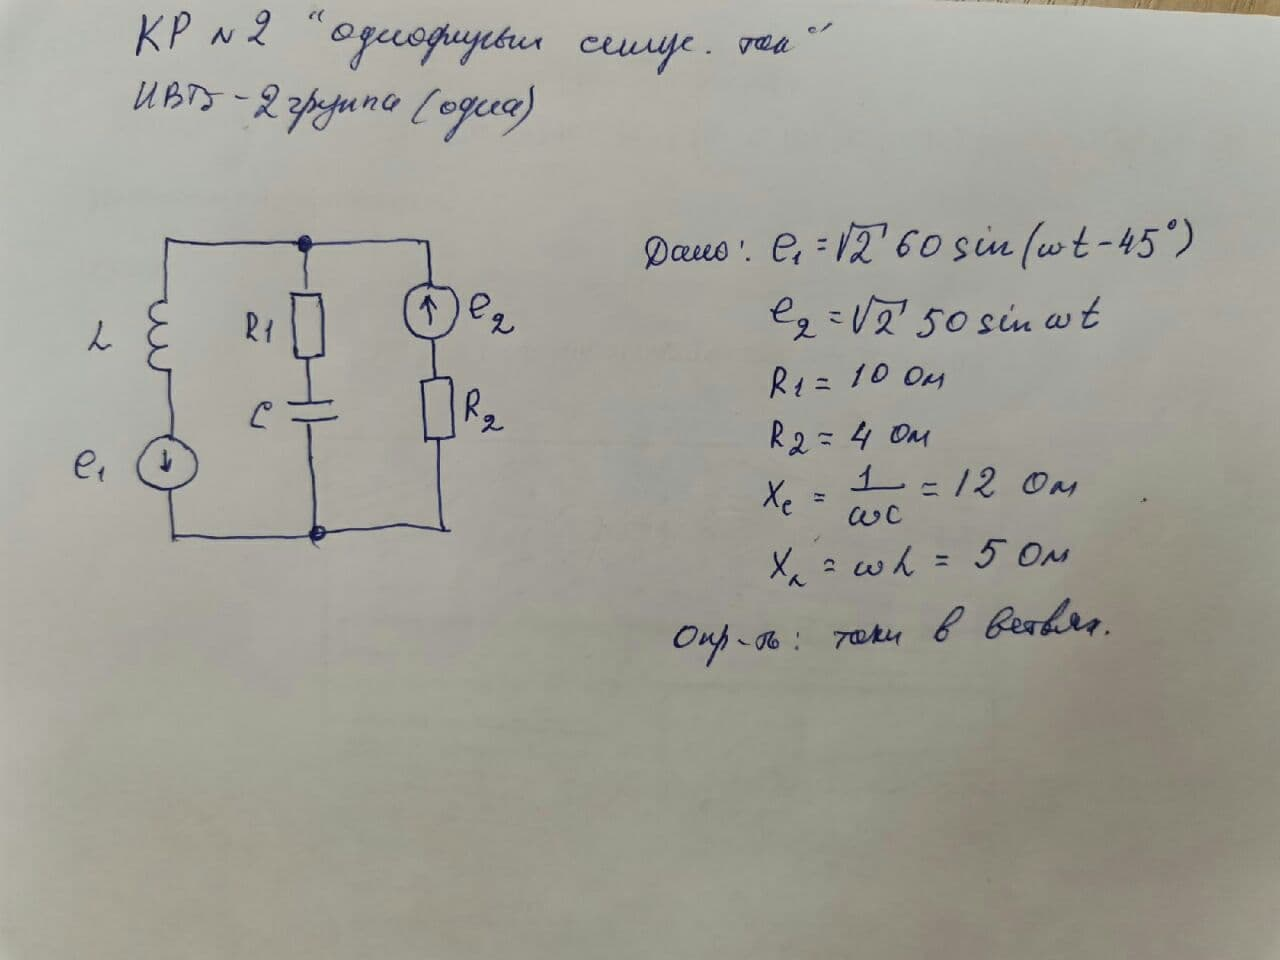 КР №2 "однофазный синус. ток"
ИВТБ-2 группа (одна)
Дано: e₁ = √2 60 sin(ωt - 45°)
e₂ = √2 50 sin ωt
R1 = 10 Ом
R2 = 4 Ом
Xc = 1/ωC = 12 Ом
XL = ωL = 5 Ом
Опр-ть: токи в ветвях.
L
R1
e₂
C
R₂
e₁